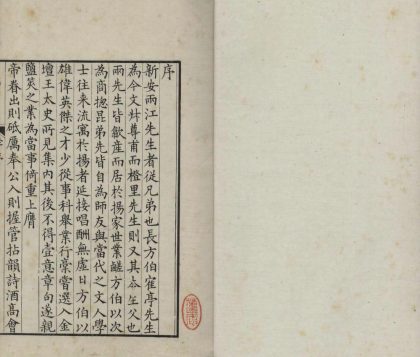 序
新安兩江先生者從兄弟也長方伯崔亭先生
為今文
尊甫而橙里先生則又其
父也
兩先生皆歙産而居於揚家世業鹺方伯以次
為商總昆弟先皆自為師友與當代之文人學
士往来流寓於揚者延接唱酬無虛日方伯以
雄偉英傑之才少從事科舉業行槀嘗選入金
壇王太史所見集内其後不得壹意章句遂親
鹽筴之業為當事倚重上膺
帝眷出則砥厲奉公入則握管拈韻詩酒高會